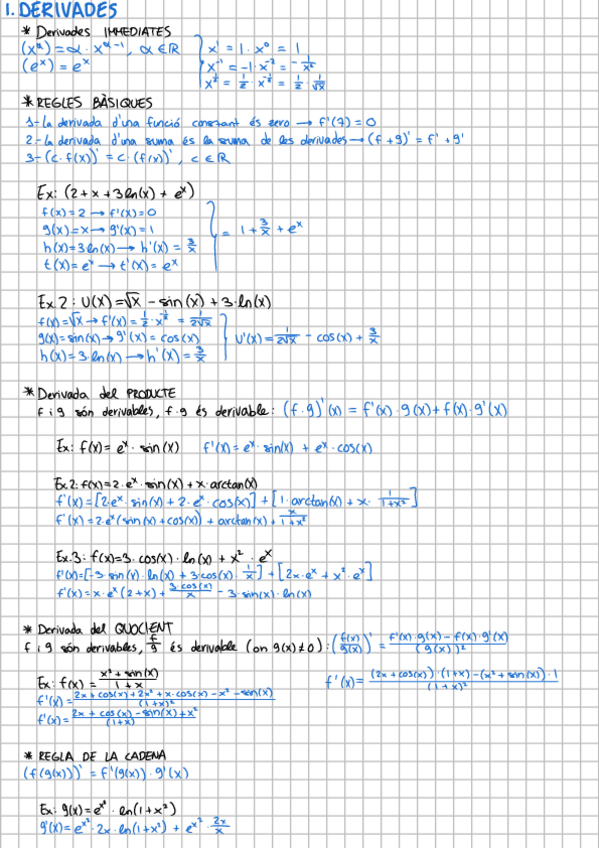 1. DERIVADES
* Derivades IMMEDIATES
(xᵅ)' = α · xᵅ⁻¹, α ∈ ℝ
(eˣ)' = eˣ
x' = 1 · x⁰ = 1
x⁻¹ = -1 · x⁻² = -1/x²
x^(1/2) = 1/2 · x^(-1/2) = 1/2 · 1/√x
* REGLES BÀSIQUES
1- La derivada d'una funció constant és zero → f'(7) = 0
2- La derivada d'una suma és la suma de les derivades → (f + g)' = f' + g'
3- (c · f(x))' = c · (f(x))', c ∈ ℝ
Ex: (2 + x + 3 ln(x) + eˣ)
f(x) = 2 → f'(x) = 0
g(x) = x → g'(x) = 1
h(x) = 3 ln(x) → h'(x) = 3/x
t(x) = eˣ → t'(x) = eˣ
= 1 + 3/x + eˣ
Ex. 2: U(x) = √x - sin(x) + 3 · ln(x)
f(x) = √x → f'(x) = 1/2 · x^(-1/2) = 1/(2√x)
g(x) = sin(x) → g'(x) = cos(x)
h(x) = 3 · ln(x) → h'(x) = 3/x
U'(x) = 1/(2√x) - cos(x) + 3/x
* Derivada del PRODUCTE
f i g són derivables, f · g és derivable: (f · g)'(x) = f'(x) · g(x) + f(x) · g'(x)
Ex: f(x) = eˣ · sin(x) f'(x) = eˣ · sin(x) + eˣ · cos(x)
Ex. 2: f(x) = 2 · eˣ · sin(x) + x · arctan(x)
f'(x) = [2 · eˣ · sin(x) + 2 · eˣ · cos(x)] + [1 · arctan(x) + x · 1/(1+x²)]
f'(x) = 2 · eˣ (sin(x) + cos(x)) + arctan(x) + x/(1+x²)
Ex. 3: f(x) = 3 · cos(x) · ln(x) + x² · eˣ
f'(x) = [-3 · sin(x) · ln(x) + 3 cos(x) · 1/x] + [2x · eˣ + x² · eˣ]
f'(x) = x · eˣ (2 + x) + (3 · cos(x))/x - 3 · sin(x) · ln(x)
* Derivada del QUOCIENT
f i g són derivables, f/g és derivable (on g(x) ≠ 0): (f(x)/g(x))' = (f'(x) · g(x) - f(x) · g'(x))/(g(x))²
Ex: f(x) = (x² + sin(x))/(1 + x) f'(x) = ((2x + cos(x)) · (1+x) - (x² + sin(x)) · 1)/(1+x)²
f'(x) = (2x + cos(x) + 2x² + x · cos(x) - x² - sin(x))/(1+x)²
f'(x) = (2x + cos(x) - sin(x) + x²)/(1+x)
* REGLA DE LA CADENA
(f(g(x)))' = f'(g(x)) · g'(x)
Ex: g(x) = e^(x²) · ln(1 + x²)
g'(x) = e^(x²) · 2x · ln(1 + x²) + e^(x²) · 2x/x